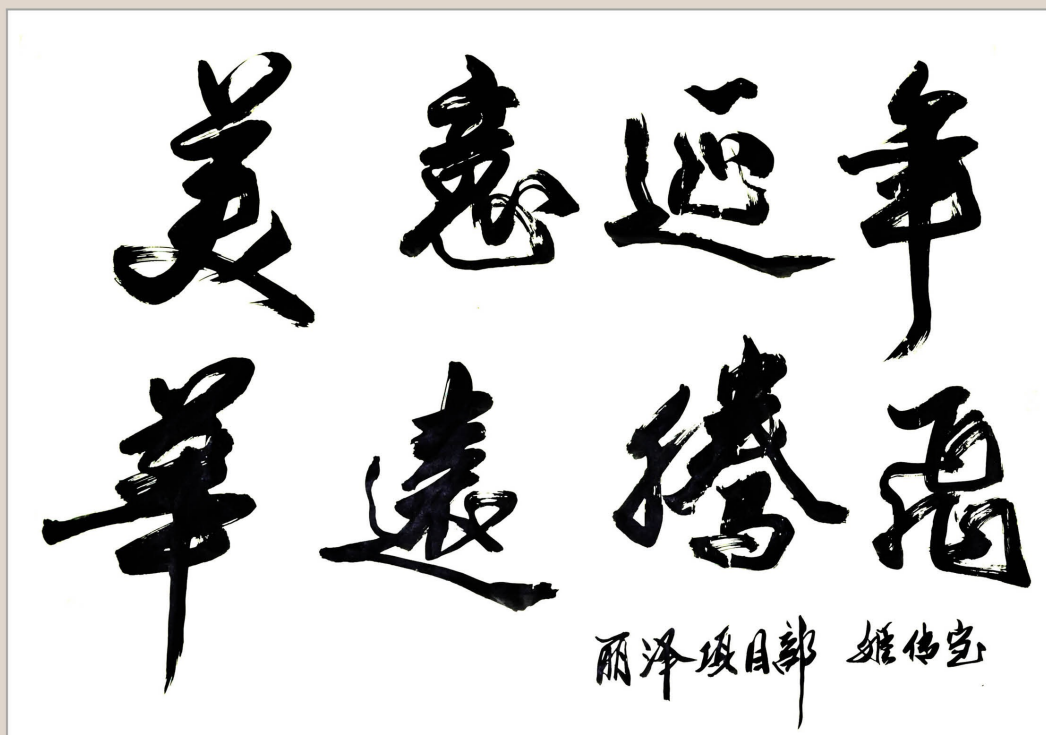 美意延年
華遠騰飛
丽泽项目部